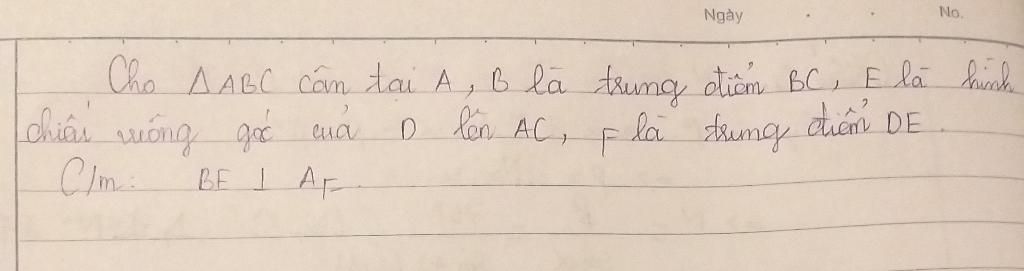 Ngày No.
Cho △ABC cân tại A, B là trung điểm BC, E là hình
chiếu vuông góc của D lên AC, F là trung điểm DE.
C/m: BE ⊥ AF.